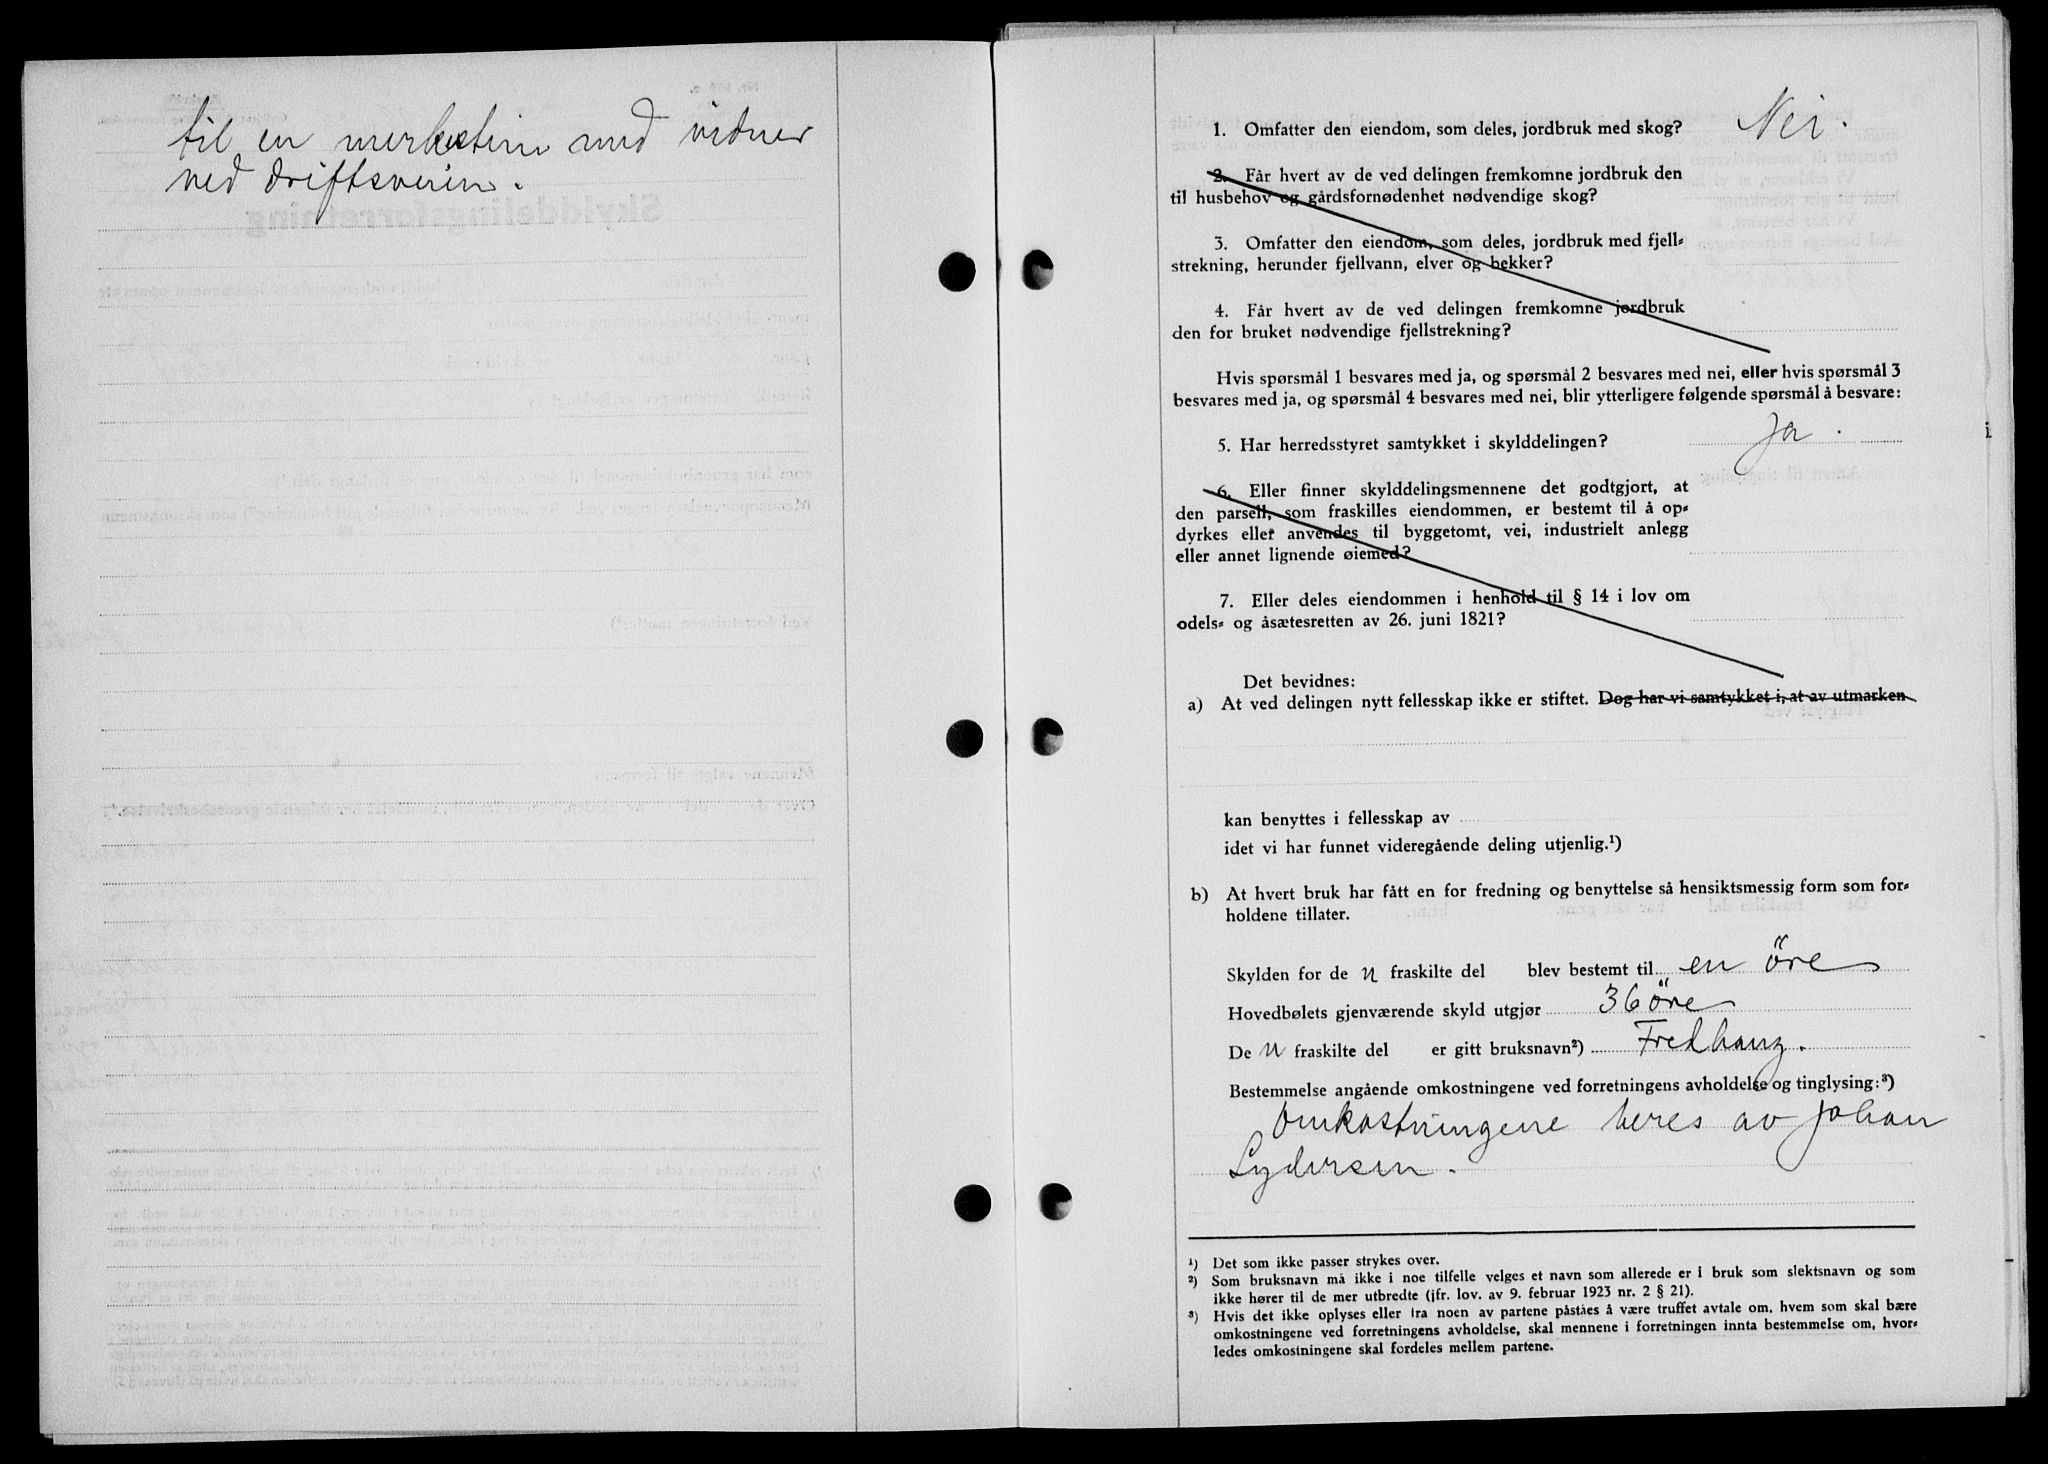 til en merkestein med vidner
ved driftsveien.
1. Omfatter den eiendom, som deles, jordbruk med skog? Nei.
2. Får hvert av de ved delingen fremkomne jordbruk den
til husbehov og gårdsfornødenhet nødvendige skog?
3. Omfatter den eiendom, som deles, jordbruk med fjell-
strekning, herunder fjellvann, elver og bekker?
4. Får hvert av de ved delingen fremkomne jordbruk
den for bruket nødvendige fjellstrekning?
Hvis spørsmål 1 besvares med ja, og spørsmål 2 besvares med nei, eller hvis spørsmål 3
besvares med ja, og spørsmål 4 besvares med nei, blir ytterligere følgende spørsmål å besvare:
5. Har herredsstyret samtykket i skylddelingen? Ja.
6. Eller finner skylddelingsmennene det godtgjort, at
den parsell, som fraskilles eiendommen, er bestemt til å op-
dyrkes eller anvendes til byggetomt, vei, industrielt anlegg
eller annet lignende øiemed?
7. Eller deles eiendommen i henhold til § 14 i lov om
odels- og åsætesretten av 26. juni 1821?
Det bevidnes:
a) At ved delingen nytt fellesskap ikke er stiftet. Dog har vi samtykket i, at av utmarken
kan benyttes i fellesskap av
idet vi har funnet videregående deling utjenlig.¹)
b) At hvert bruk har fått en for fredning og benyttelse så hensiktsmessig form som for-
holdene tillater.
Skylden for de n fraskilte del blev bestemt til en öre
Hovedbølets gjenværende skyld utgjør 36 öre
De n fraskilte del er gitt bruksnavn²) Fredhaug.
Bestemmelse angående omkostningene ved forretningens avholdelse og tinglysing:³)
Omkostningene beres av Johan
Lydersen.
¹) Det som ikke passer strykes over.
²) Som bruksnavn må ikke i noe tilfelle velges et navn som allerede er i bruk som slektsnavn og som
ikke hører til de mer utbredte (jfr. lov. av 9. februar 1923 nr. 2 § 21).
³) Hvis det ikke oplyses eller fra noen av partene påståes å være truffet avtale om, hvem som skal bære
omkostningene ved forretningens avholdelse, skal mennene i forretningen innta bestemmelse om, hvor-
ledes omkostningene skal fordeles mellem partene.